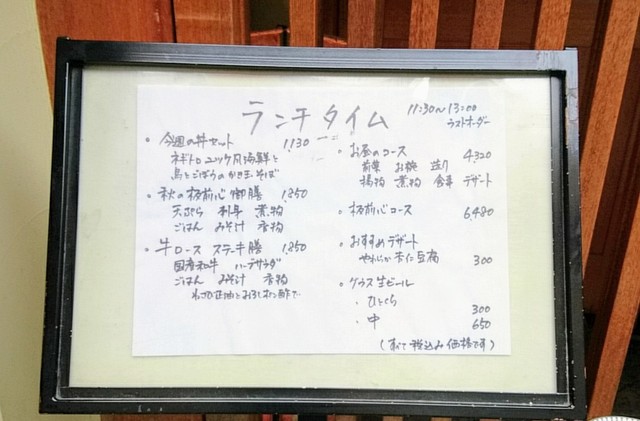 ランチタイム
11:30~13:00
ラストオーダー
・今週の丼セット 1130
ネギトロユッケ風海鮮と
鳥とごぼうのかき玉そば
・秋の板前心御膳 1,850
天ぷら 刺身 煮物
ごはん みそ汁 香物
・牛ロースステーキ膳 1,850
国産和牛 ハーブサラダ
ごはん みそ汁 香物
わさび正油とみぞれポン酢で
・お昼のコース 4320
前菜 お椀 造り
揚物 煮物 食事 デザート
・板前心コース 6,480
・おすすめデザート
やわらか杏仁豆腐 300
・グラス生ビール
・ひとくち 300
・中 650
(すべて税込み価格です)